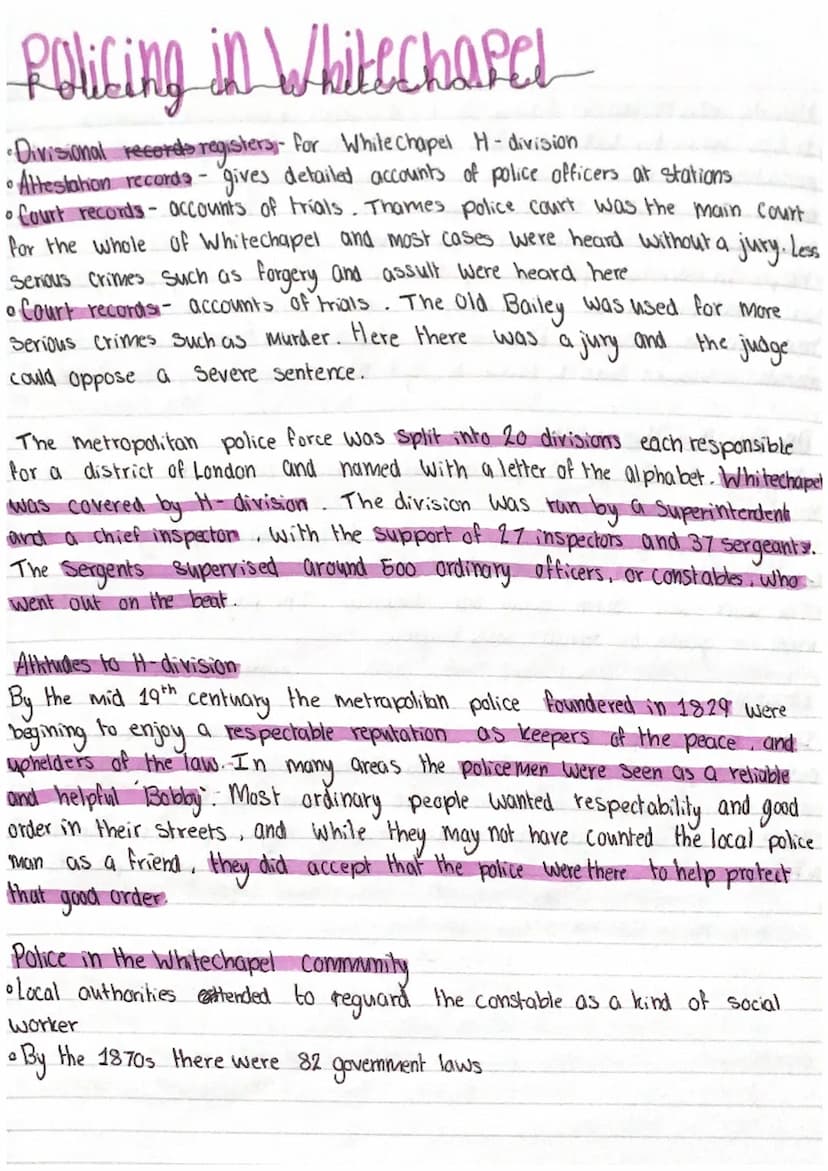 Policing in Whitechapel
Policing in Whitechapel
• Divisional records registers - for Whitechapel H-division
• Attestation records - gives detailed accounts of police officers at stations
• Court records - accounts of trials. Thames police court was the main court
for the whole of Whitechapel and most cases were heard without a jury. Less
serious crimes such as forgery and assult were heard here
• Court records - accounts of trials. The Old Bailey was used for more
serious crimes such as murder. Here there was a jury and the judge
could oppose a severe sentence.
The metropolitan police force was split into 20 divisions each responsible
for a district of London and named with a letter of the alphabet. Whitechapel
was covered by H-division. The division was run by a Superintendent
and a chief inspector, with the support of 27 inspectors and 37 sergeants.
The Sergents supervised around 500 ordinary officers, or constables, who
went out on the beat.
Attitudes to H-division
By the mid 19th centuary the metropolitan police foundered in 1829 were
begining to enjoy a respectable reputation as keepers of the peace, and
upholders of the law. In many areas the policemen were seen as a reliable
and helpful 'Bobby'. Most ordinary people wanted respectability and good
order in their streets, and while they may not have counted the local police
man as a friend, they did accept that the police were there to help protect
that good order.
Police in the Whitechapel Community
• Local authorities to reguard the constable as a kind of social
worker
• By the 1870s there were 82 government laws